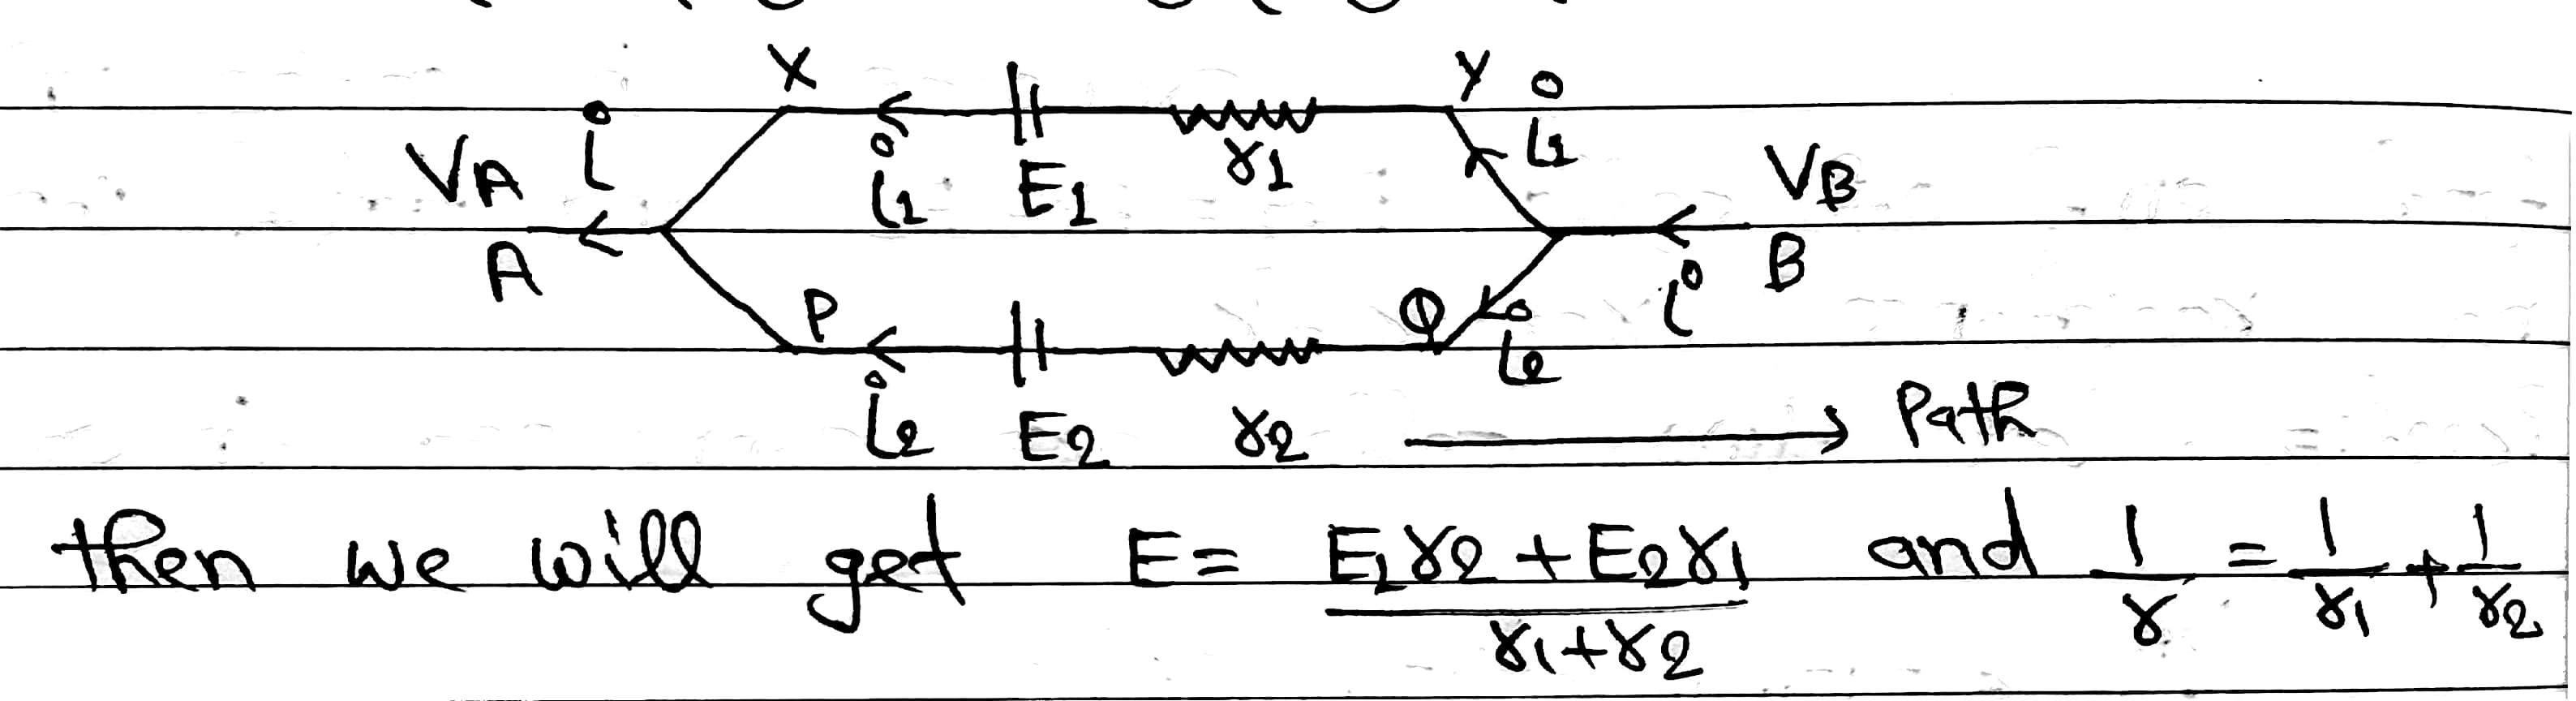 X Y i₁
V_A i i₁ E₁ r₁ V_B
A B
P Q i₂ i
i₂ E₂ r₂ → Path
then we will get E = (E₁r₂ + E₂r₁)/(r₁+r₂) and 1/r = 1/r₁ + 1/r₂